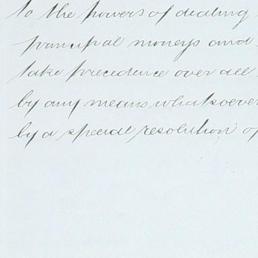 to the powers of dealing
principal moneys and
take precedence over all
by any means whatsoever
by a special resolution of